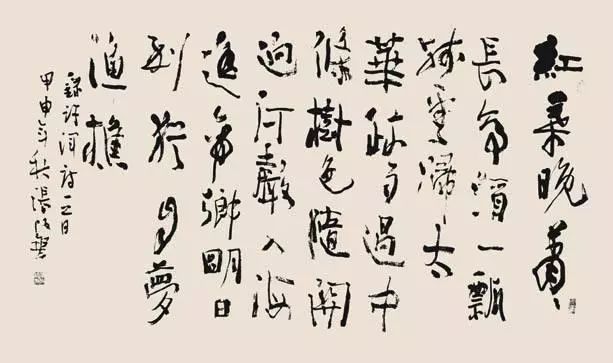 紅葉晚蕭
長亭一瓢
殘雲歸太
華疏雨過中
條樹色隨關
迥河聲入海
遙帝鄉明日
到猶自夢
漁樵
錄許渾詩
甲申年秋張改琴